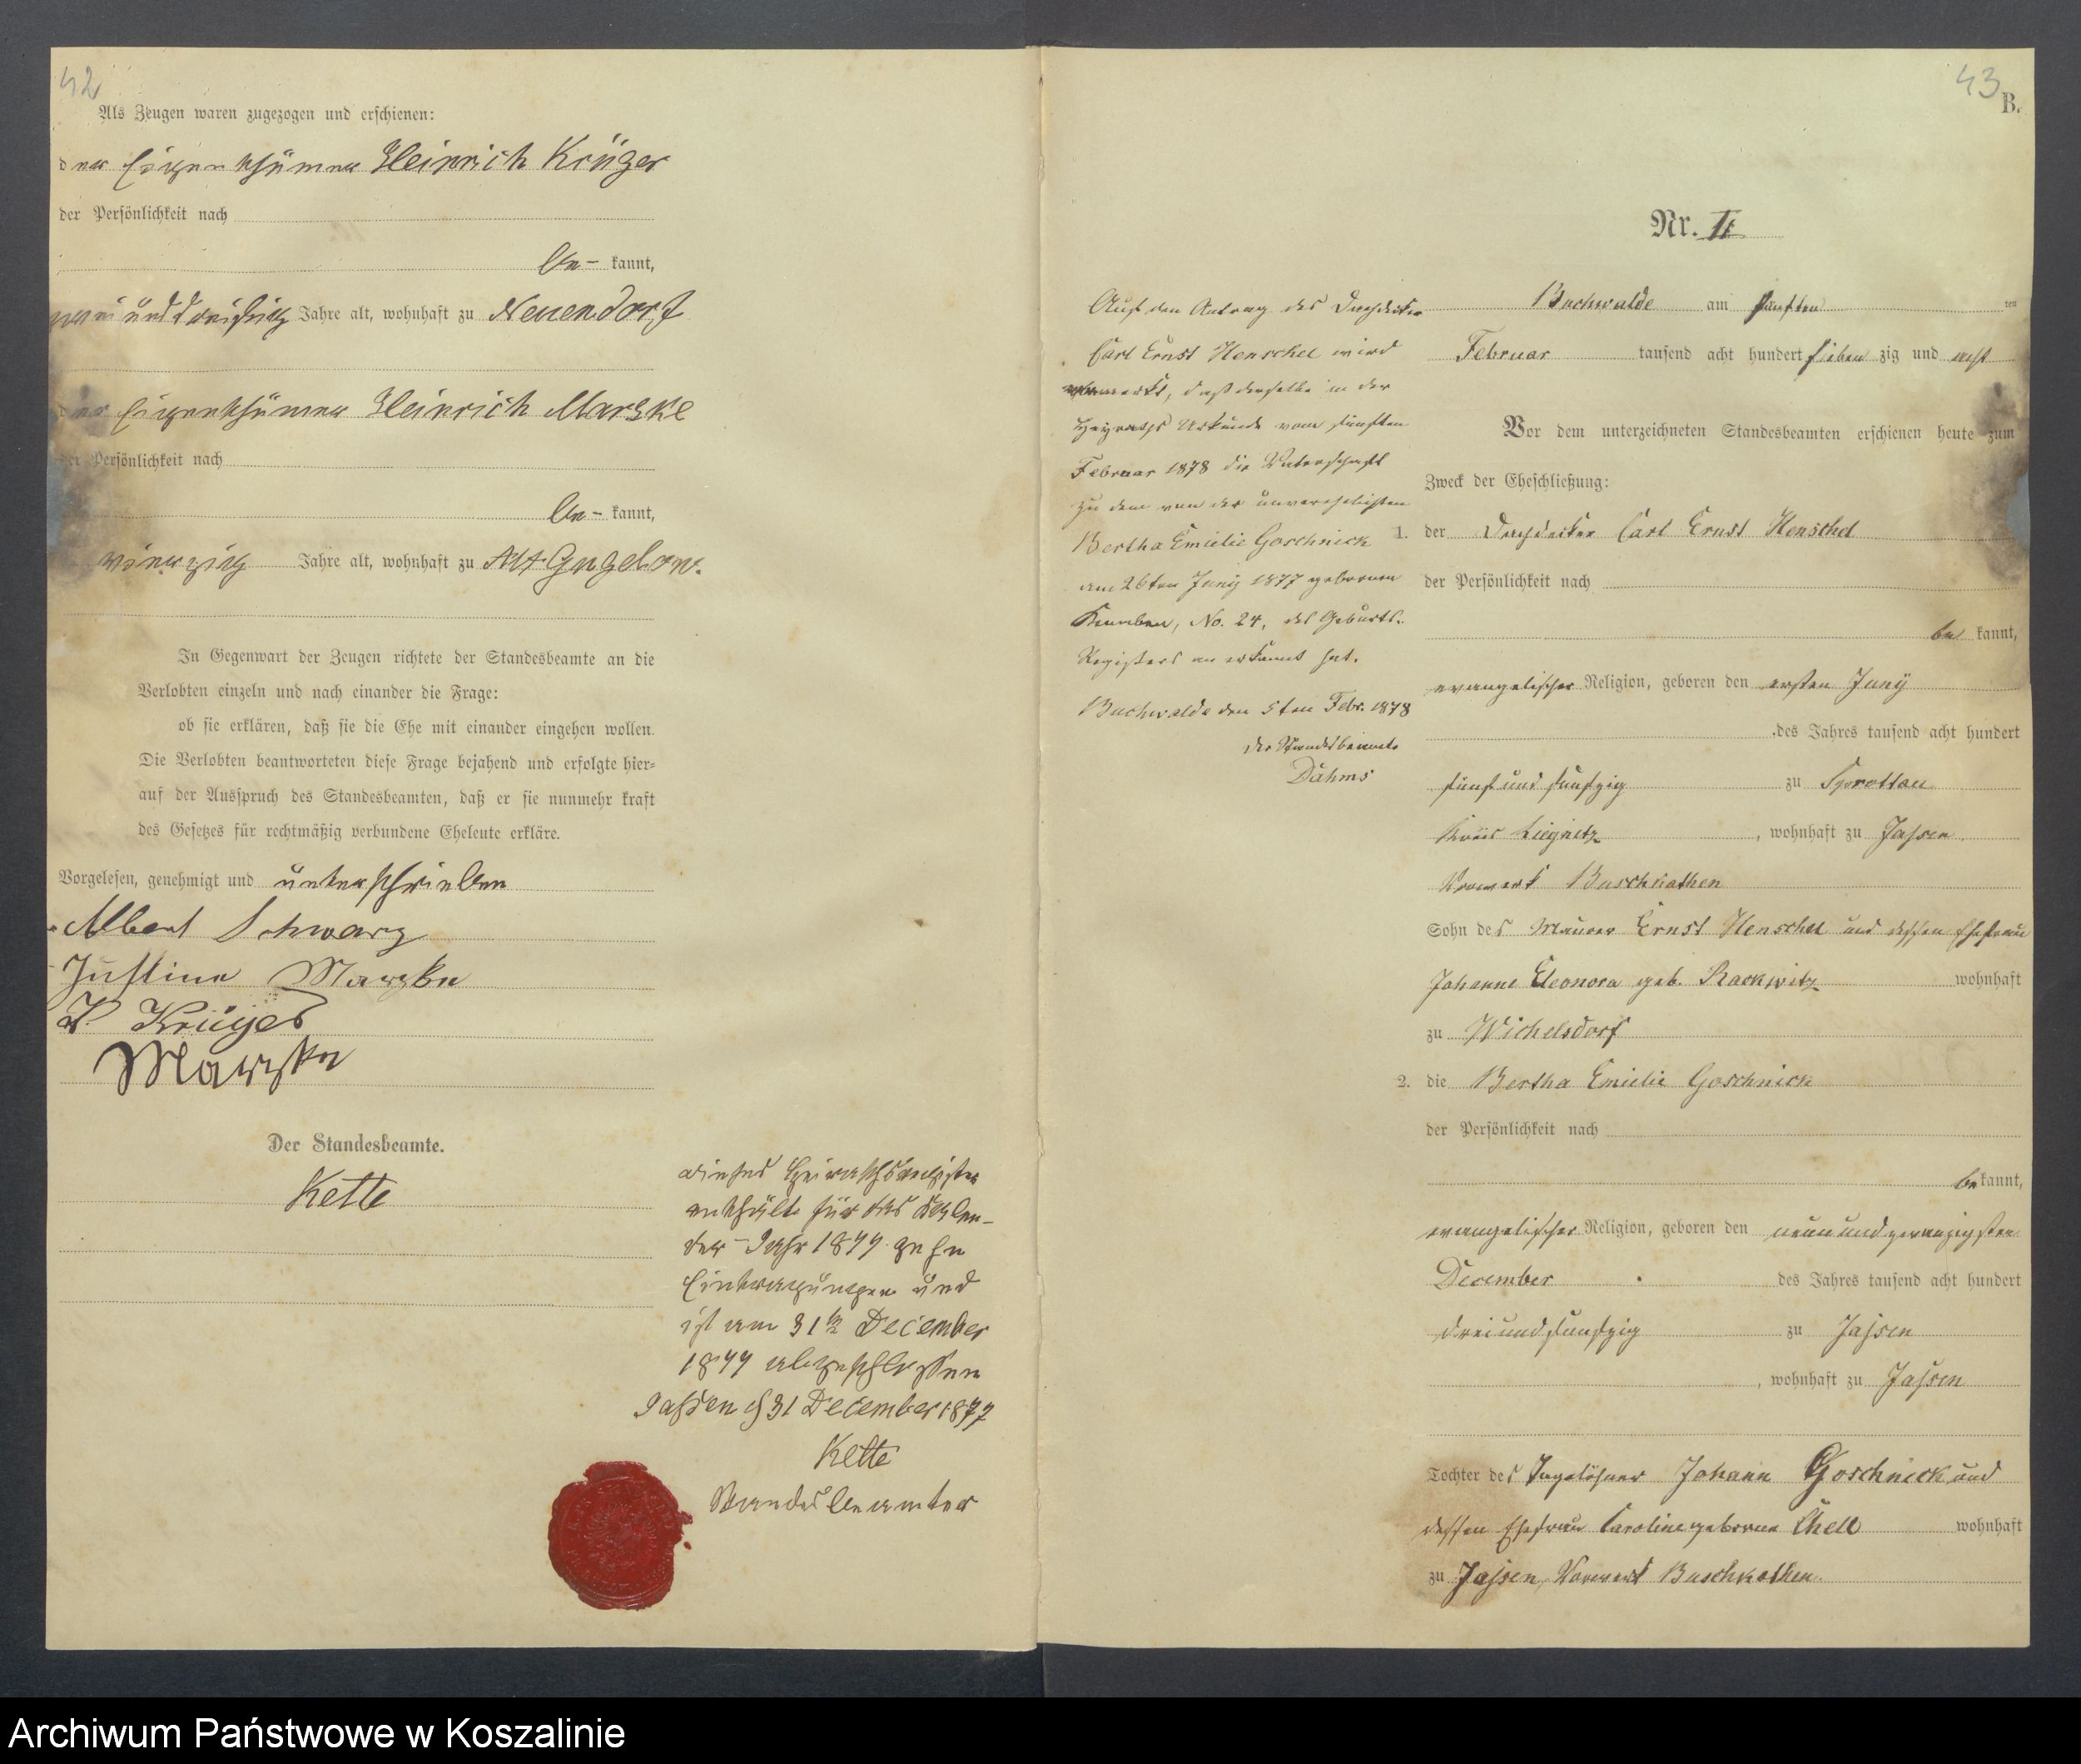 42
Als Zeugen waren zugezogen und erschienen:
der Eigenthümer Heinrich Krüger
der Persönlichkeit nach
be- kannt,
und dreißig Jahre alt, wohnhaft zu Neuendorf
der Eigenthümer Heinrich Marske
der Persönlichkeit nach
be- kannt,
vierzig Jahre alt, wohnhaft zu Alt Gugelow.
In Gegenwart der Zeugen richtete der Standesbeamte an die
Verlobten einzeln und nach einander die Frage:
ob sie erklären, daß sie die Ehe mit einander eingehen wollen.
Die Verlobten beantworteten diese Frage bejahend und erfolgte hier-
auf der Ausspruch des Standesbeamten, daß er sie nunmehr kraft
des Gesetzes für rechtmäßig verbundene Eheleute erkläre.
Vorgelesen, genehmigt und unterschrieben
Albert Schwarz
Justine Marzke
H. Krüger
Marzke
Der Standesbeamte.
Kette
Dieses Heirathsregister
enthält für das Kalen-
der-Jahr 1877 zehn
Eintragungen und
ist am 31ten December
1877 abgeschlossen
Jassen d 31 December 1877
Kette
Standesbeamter
43
B.
Nr. II
Buchwalde am fünften ten
Februar tausend acht hundert siebenzig und acht
Vor dem unterzeichneten Standesbeamten erschienen heute zum
Zweck der Eheschließung:
1. der Dachdecker Carl Ernst Henschel
der Persönlichkeit nach
be kannt,
evangelischer Religion, geboren den ersten Juny
des Jahres tausend acht hundert
fünf und funfzig zu Sprottau
Kreis Liegnitz, wohnhaft zu Jassen
Vorwerk Buschkathen
Sohn des Maurer Ernst Henschel und dessen Ehefrau
Johanne Eleonora geb. Rackwitz wohnhaft
zu Wichelsdorf
2. die Bertha Emielie Goschnick
der Persönlichkeit nach
be kannt,
evangelischer Religion, geboren den neunundzwanzigsten
December des Jahres tausend acht hundert
dreiundfunfzig zu Jassen
, wohnhaft zu Jassen
Tochter des Tagelöhner Johann Goschnick und
dessen Ehefrau Caroline geborne Chell wohnhaft
zu Jassen, Vorwerk Buschkathen.
Auf den Antrag des Dachdecker
Carl Ernst Henschel wird
vermerkt, daß derselbe in der
Heiraths Urkunde vom fünften
Februar 1878 die Vaterschaft
zu dem von der unverehelichten
Bertha Emielie Goschnick
am 26ten Juny 1877 geborenen
Knaben, No. 24, des Geburts-
Registers anerkannt hat.
Buchwalde den 5ten Febr. 1878
Der Standesbeamte
Dahms
Archiwum Państwowe w Koszalinie